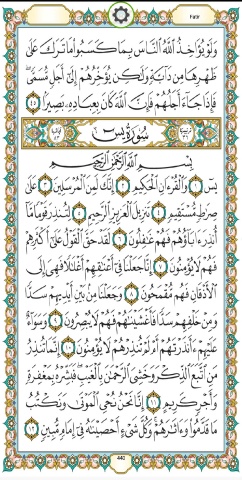 Fatir
وَلَوْ يُؤَاخِذُ اللَّهُ النَّاسَ بِمَا كَسَبُوا مَا تَرَكَ عَلَىٰ
ظَهْرِهَا مِن دَابَّةٍ وَلَٰكِن يُؤَخِّرُهُمْ إِلَىٰ أَجَلٍ مُّسَمًّى ۖ
فَإِذَا جَاءَ أَجَلُهُمْ فَإِنَّ اللَّهَ كَانَ بِعِبَادِهِ بَصِيرًا ٤٥
سُورَةُ يس
بِسْمِ اللَّهِ الرَّحْمَٰنِ الرَّحِيمِ
يس ١ وَالْقُرْآنِ الْحَكِيمِ ٢ إِنَّكَ لَمِنَ الْمُرْسَلِينَ ٣ عَلَىٰ
صِرَاطٍ مُّسْتَقِيمٍ ٤ تَنزِيلَ الْعَزِيزِ الرَّحِيمِ ٥ لِتُنذِرَ قَوْمًا مَّا
أُنذِرَ آبَاؤُهُمْ فَهُمْ غَافِلُونَ ٦ لَقَدْ حَقَّ الْقَوْلُ عَلَىٰ أَكْثَرِهِمْ
فَهُمْ لَا يُؤْمِنُونَ ٧ إِنَّا جَعَلْنَا فِي أَعْنَاقِهِمْ أَغْلَالًا فَهِيَ إِلَى
الْأَذْقَانِ فَهُم مُّقْمَحُونَ ٨ وَجَعَلْنَا مِن بَيْنِ أَيْدِيهِمْ سَدًّا
وَمِنْ خَلْفِهِمْ سَدًّا فَأَغْشَيْنَاهُمْ فَهُمْ لَا يُبْصِرُونَ ٩ وَسَوَاءٌ
عَلَيْهِمْ أَأَنذَرْتَهُمْ أَمْ لَمْ تُنذِرْهُمْ لَا يُؤْمِنُونَ ١٠ إِنَّمَا تُنذِرُ
مَنِ اتَّبَعَ الذِّكْرَ وَخَشِيَ الرَّحْمَٰنَ بِالْغَيْبِ ۖ فَبَشِّرْهُ بِمَغْفِرَةٍ
وَأَجْرٍ كَرِيمٍ ١١ إِنَّا نَحْنُ نُحْيِي الْمَوْتَىٰ وَنَكْتُبُ
مَا قَدَّمُوا وَآثَارَهُمْ ۚ وَكُلَّ شَيْءٍ أَحْصَيْنَاهُ فِي إِمَامٍ مُّبِينٍ ١٢
440